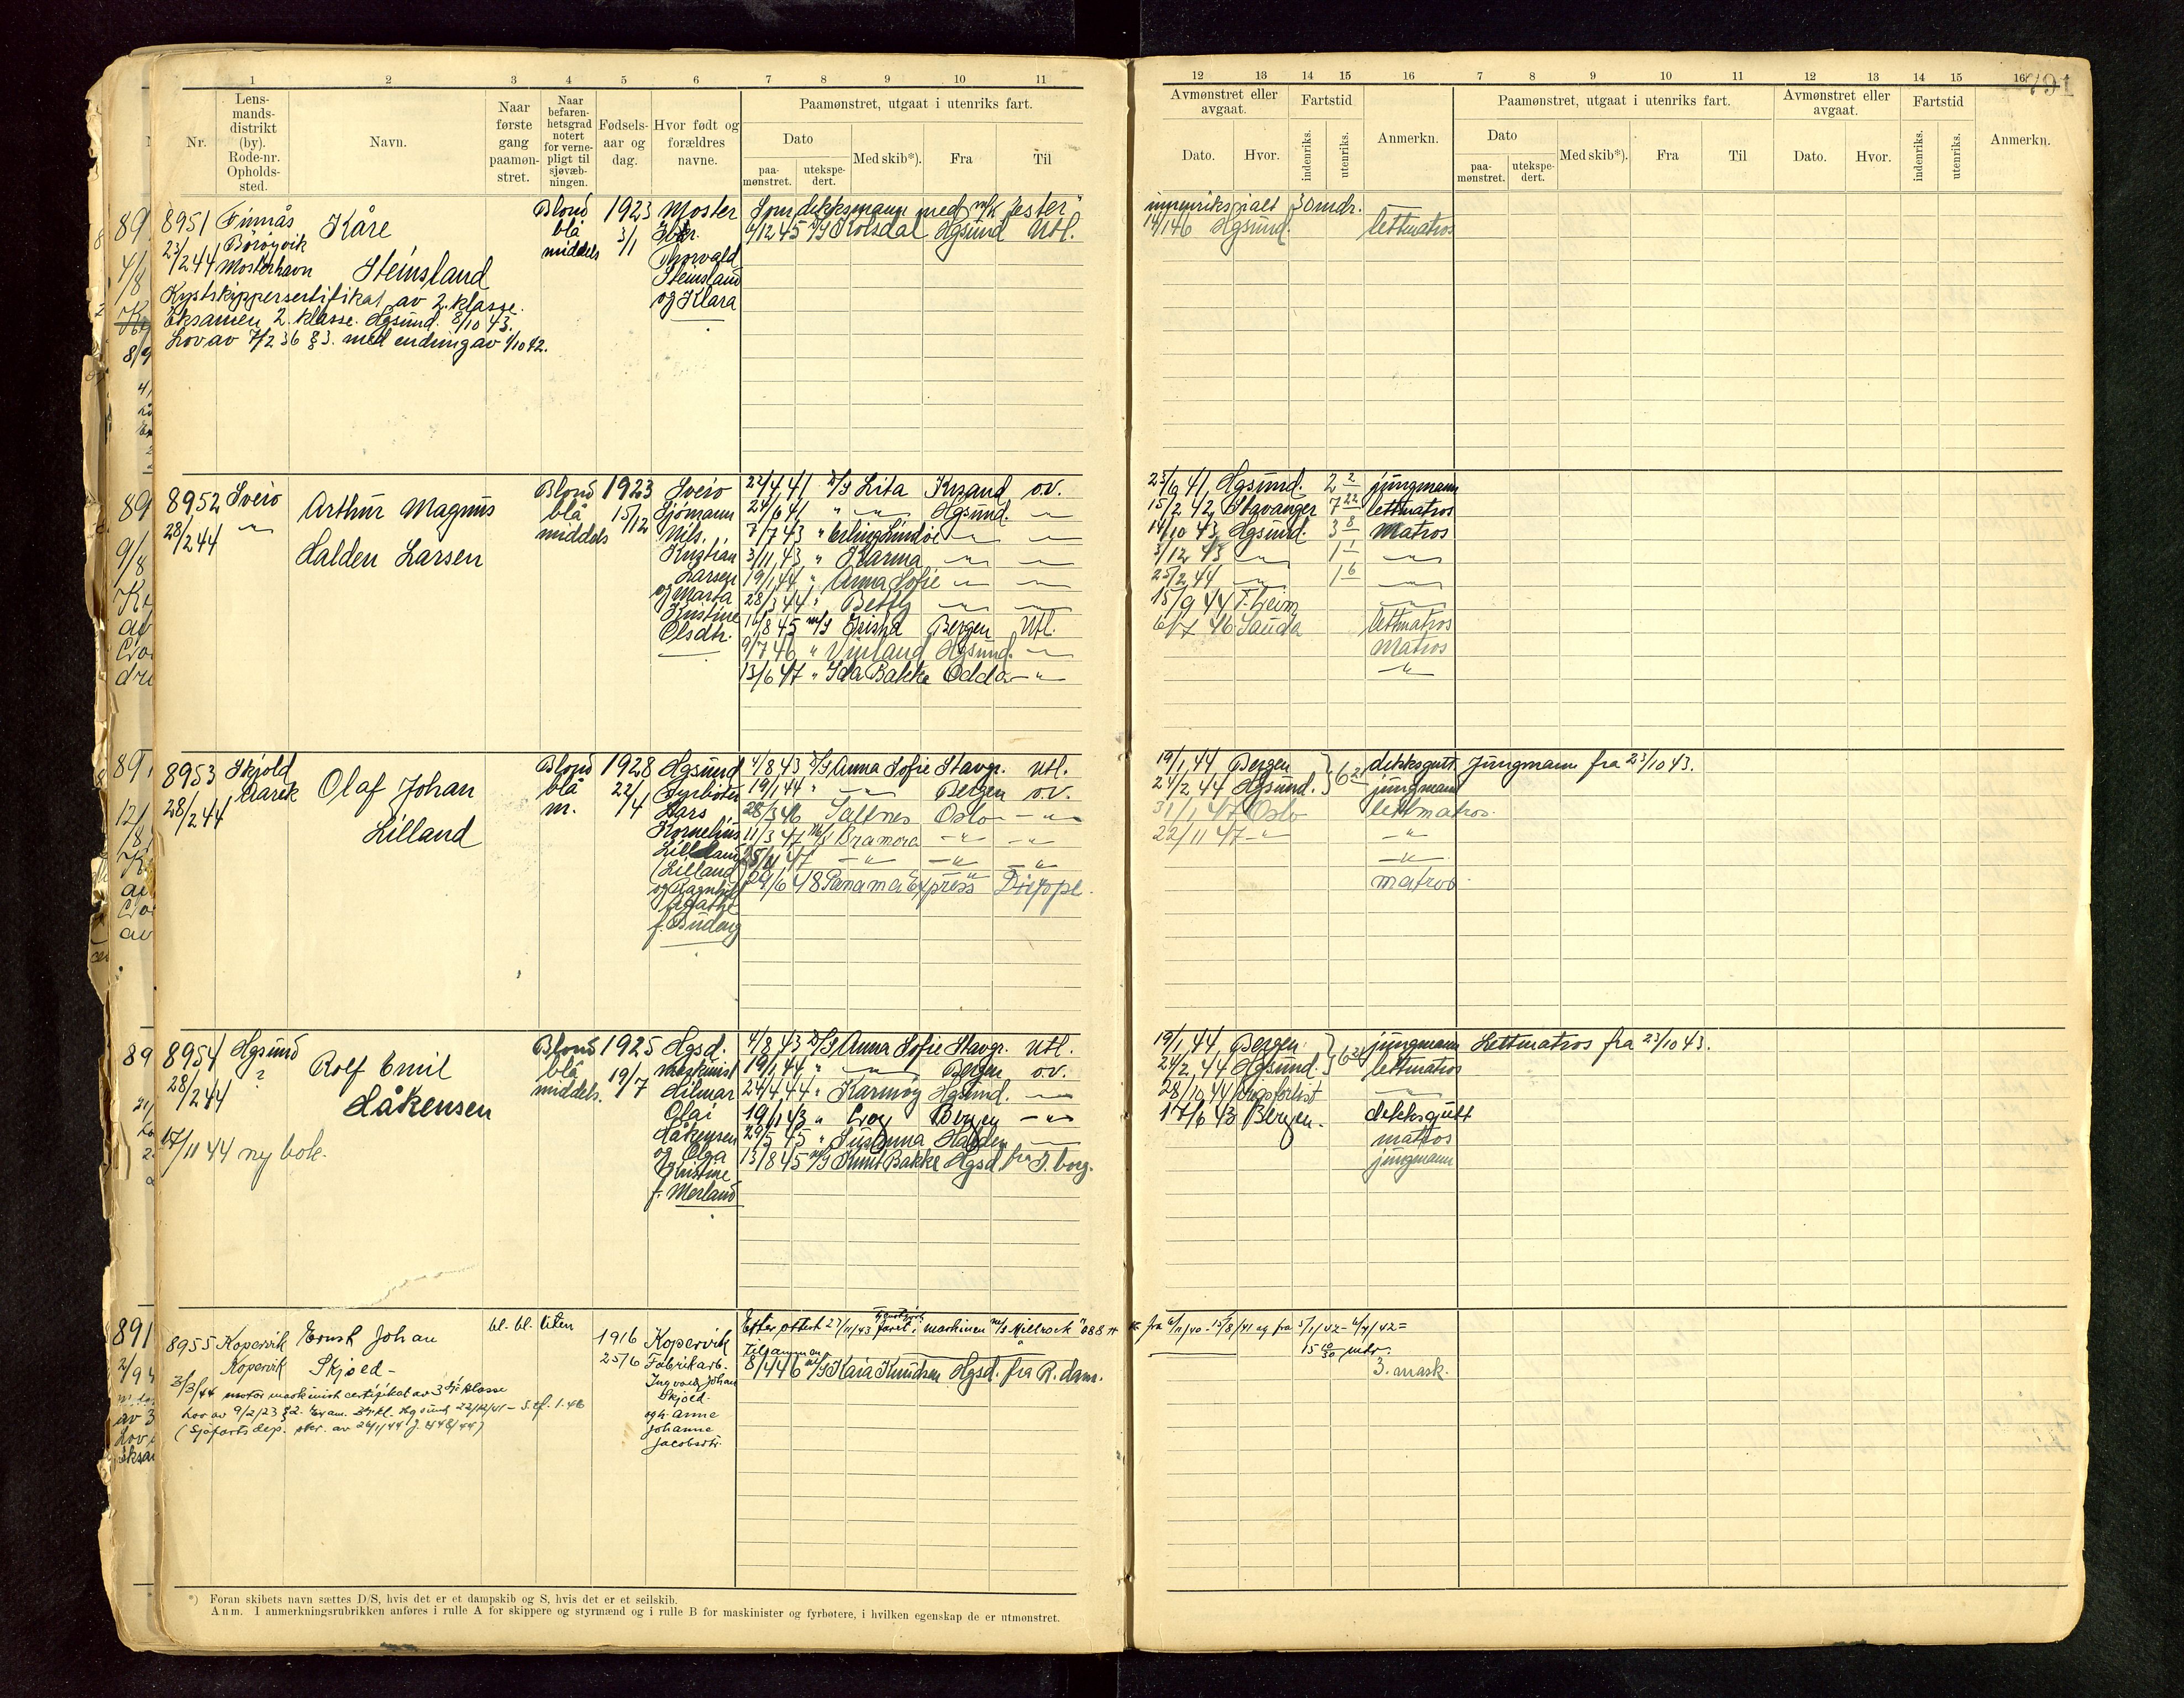 791
1 2 3 4 5 6 7 8 9 10 11
Nr.
Lensmandsdistrikt (by). Rode-nr. Opholdssted.
Navn.
Naar første gang paamønstret.
Naar befarenhetsgrad notert for vernepligt til sjøvæbningen.
Fødselsaar og dag.
Hvor født og forældres navne.
Paamønstret, utgaat i utenriks fart.
Dato
paamønstret.
utekspedert.
Med skib*).
Fra
Til
12 13 14 15 16 7 8 9 10 11 12 13 14 15 16
Avmønstret eller avgaat.
Dato.
Hvor.
Fartstid
indenriks.
utenriks.
Anmerkn.
Paamønstret, utgaat i utenriks fart.
Dato
paamønstret.
utekspedert.
Med skib*).
Fra
Til
Avmønstret eller avgaat.
Dato.
Hvor.
Fartstid
indenriks.
utenriks.
Anmerkn.
8951 Finnås Kåre Blond 1923 Moster Som dekksmann med m/k "Jester" innenriks ialt 30 mdr.
Börøyvik blå 3/1 /12 45 Kolsdal Hgsund Utl. 14/1 46 Hgsund. lettmatros
23/2 44 Mosterhavn Steinsland middels Thorvald
Steinsland
og Klara
Kystskippersertifikat av 2. klasse.
Eksamen 2. klasse. Hgsund. 8/10 43.
Lov av 7/2 36 § 3. med endring av 1/10 42.
8952 Sveio Arthur Magnus Blond 1923 Sveio 22/4 41 D/S Lita Krsand o.v. 25/6 41 Hgsund. 2 2 jungmann
28/2 44 — " — blå 15/12 Sjömann 24/6 41 " — " — Hgsund. — " — 15/2 42 Stavanger 7 22 lettmatros
Halden Larsen middels Nils. 7/7 43 " Erling Lindøe — " — — " — 14/10 43 Hgsund. 3 8 Matros
Kristian 3/11 43 " Karma — " — — " — 3/12 43 — " — 1 1 — " —
Larsen 19/1 44 " Anna Sofie — " — — " — 25/2 44 — " — 1 6 — " —
og Marta 28/3 44 " Betty — " — — " — 15/9 44 T.heim — " —
Kristine 16/8 45 m/S Bergen Utl. 6/7 46 Sauda lettmatros
Olsdtr. 9/7 46 " Vinland Hgsund. — " — Matros
13/6 47 " Ida Bakke Odda — " — — " —
8953 Skjold Olaf Johan Blond 1928 Hgsund 4/8 43 D/S Anna Sofie Stavgr. Utl. 19/1 44 Bergen dekksgutt Jungmann fra 23/10 43.
28/2 44 blå 22/4 Fyrbøter 19/1 44 " — " — Bergen o.v. 24/2 44 Hgsund. 6 21 jungmann
Lilland m. Lars 28/3 46 Saltnes Oslo — " — 31/1 47 Oslo lettmatros.
Kornelius 11/3 47 M/S Bramora — " — — " — 22/11 47 — " — — " —
Lilleland 25/11 47 — " — — " — — " — — " —
(Lilland) 29/6 48 Panama Express Dieppe. matros
og Ragnhild
Agathe
8954 Hgsund Rolf Emil Blond 1925 Hgsd. 4/8 43 D/S Anna Sofie Stavgr. Utl. 19/1 44 Bergen jungmann Lettmatros fra 23/10 43.
28/2 44 ? blå 19/7 maskinist 19/1 44 " — " — Bergen o.v. 24/2 44 Hgsund. 6 21 lettmatros
Håkensen middels. Hilmar 24/4 44 " Karmøy Hgsund. — " — 28/10 44 Krigsforlist — " —
Olai 19/1 43 " Bergen — " — 17/6 43 Bergen. dekksgutt
Håkensen 29/5 45 " Susanna Halden — " — matros
og Olga 13/8 45 m/S Knut Bakke Hgsd. fra G.borg. jungmann
Kristine
f. Mørland
17/11 44 ny bok.
8955 Kopervik Ernst Johan bl. bl. liten 1916 Kopervik Efter attest 27/11/43 faret i maskinen m/S Millrock
Kopervik Skjoed - 25/6 Fabrikarb. tilsammen 15 10/30 mdr.
Ingvald Johan 8/4 46 m/S Kaia Knudsen Hgsd. fra R.dam. 3. mask.
Skjoed
og h. Anne
Johanne
Jacobsdtr.
3/3/44 motormaskinist certifikat av 3dje klasse
Lov av 9/2/23 § 2. Exam. 3dje kl. Hgsund 22/12/41
(Sjøfartsdep. skr. av 26/1/44 J. 448/44)
*) Foran skibets navn sættes D/S, hvis det er et dampskib og S, hvis det er et seilskib.
Anm. I anmerkningsrubrikken anføres i rulle A for skippere og styrmænd og i rulle B for maskinister og fyrbøtere, i hvilken egenskap de er utmønstret.